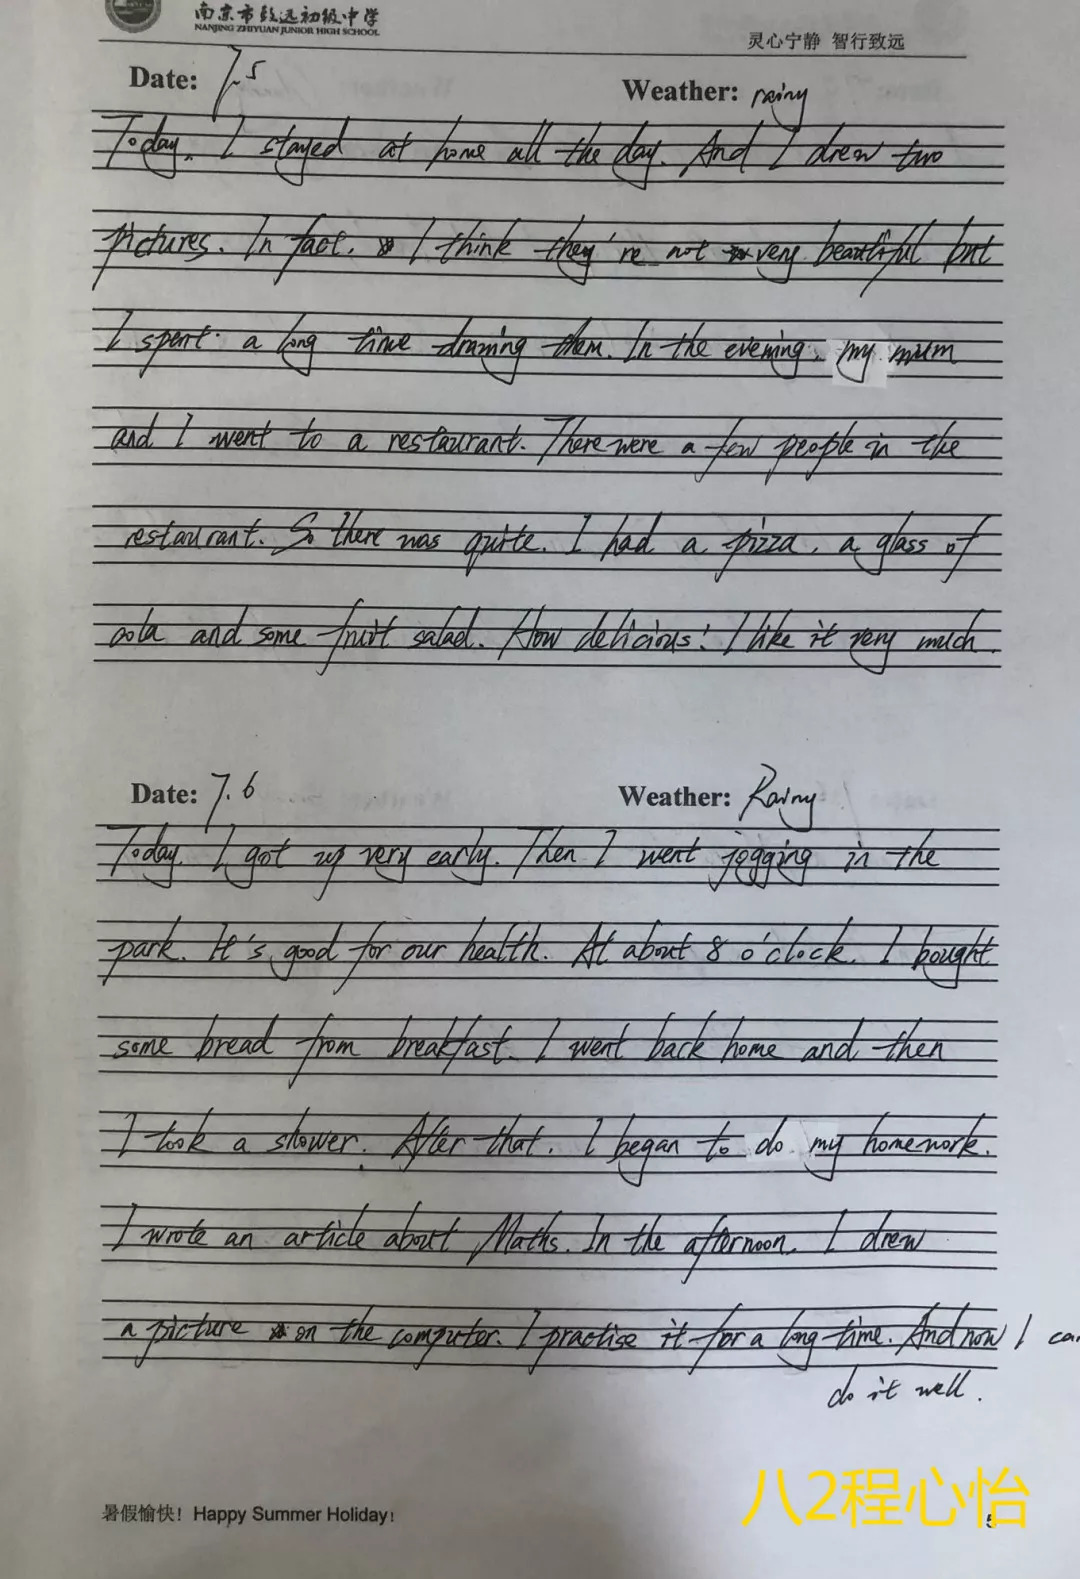 南京市致远初级中学
NANJING ZHIYUAN JUNIOR HIGH SCHOOL
灵心宁静 智行致远
Date: 7.5 Weather: rainy
Today, I stayed at home all the day. And I drew two
pictures. In fact, I think they're not very beautiful but
I spent a long time drawing them. In the evening, my mum
and I went to a restaurant. There were a few people in the
restaurant. So there was quite. I had a pizza, a glass of
cola and some fruit salad. How delicious! I like it very much.
Date: 7.6 Weather: Rainy
Today, I got up very early. Then I went jogging in the
park. It's good for our health. At about 8 o'clock, I bought
some bread from breakfast. I went back home and then
I took a shower. After that, I began to do my homework.
I wrote an article about Maths. In the afternoon, I drew
a picture on the computer. I practise it for a long time. And now I can
do it well.
暑假愉快! Happy Summer Holiday!
八2程心怡
5